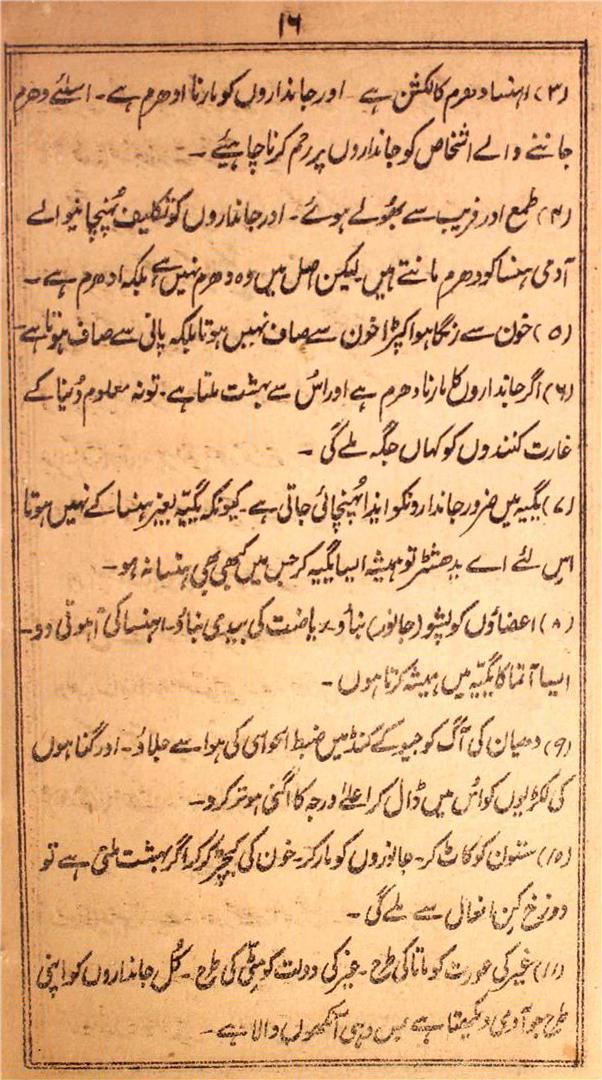 ۱۶
(۳) اہنسا دھرم کا لکشن ہے ۔ اور جانداروں کو مارنا ادھرم ہے ۔ اسلئے دھرم
جاننے والے اشخاص کو جانداروں پر رحم کرنا چاہیئے ۔
(۴) طمع اور فریب سے بھولے ہوئے ۔ اور جانداروں کو تکلیف پہنچانیوالے
آدمی ہنسا کو دھرم مانتے ہیں لیکن اصل میں وہ دھرم نہیں ہے بلکہ ادھرم ہے ۔
(۵) خون سے رنگا ہوا کپڑا خون سے صاف نہیں ہوتا بلکہ پانی سے صاف ہوتا ہے ۔
(۶) اگر جانداروں کا مارنا دھرم ہے اور اُس سے بہشت ملتا ہے ۔ تو نہ معلوم دُنیا کے
غارت کنندوں کو کہاں جگہ ملے گی ۔
(۷) یگیہ میں ضرور جاندارونکو ایذا پہنچائی جاتی ہے ۔ کیونکہ یگیّہ بغیر ہنسا کے نہیں ہوتا
اس لئے اے یدھشٹر تو ہمیشہ ایسا یگیہ کر جس میں کبھی بھی ہنسا نہ ہو ۔
(۸) اعضاؤں کو پشو (جانور) بناؤ ۔ ریاضت کی بیدی بناؤ ۔ اہنسا کی آہوتی دو ۔
ایسا آتما کا یگیّہ میں ہمیشہ کرتا ہوں ۔
(۹) دھیان کی آگ کو جیو کے کنڈ میں ضبط الحواس کی ہوا سے جلاؤ ۔ اور گناہوں
کی لکڑیوں کو اُس میں ڈال کر اعلےٰ درجہ کا اگنی ہوتر کرو ۔
(۱۰) ستون کو کاٹ کر ۔ جانوروں کو مار کر ۔ خون کی کیچڑ کر کر اگر بہشت ملتی ہے تو
دوزخ کِن افعال سے ملے گی ۔
(۱۱) غیر کی عورت کو ماتا کی طرح ۔ غیر کی دولت کو مٹّی کی طرح ۔ کُل جانداروں کو اپنی
طرح جو آدمی دیکھتا ہے بس وہی آنکھوں والا ہے ۔